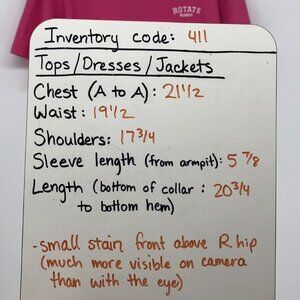 ROTATE
Inventory code: 411
Tops/Dresses/Jackets
Chest (A to A): 21 1/2
Waist: 19 1/2
Shoulders: 17 3/4
Sleeve length (from armpit): 5 7/8
Length (bottom of collar : 20 3/4
to bottom hem)
-small stain front above R hip
(much more visible on camera
than with the eye)